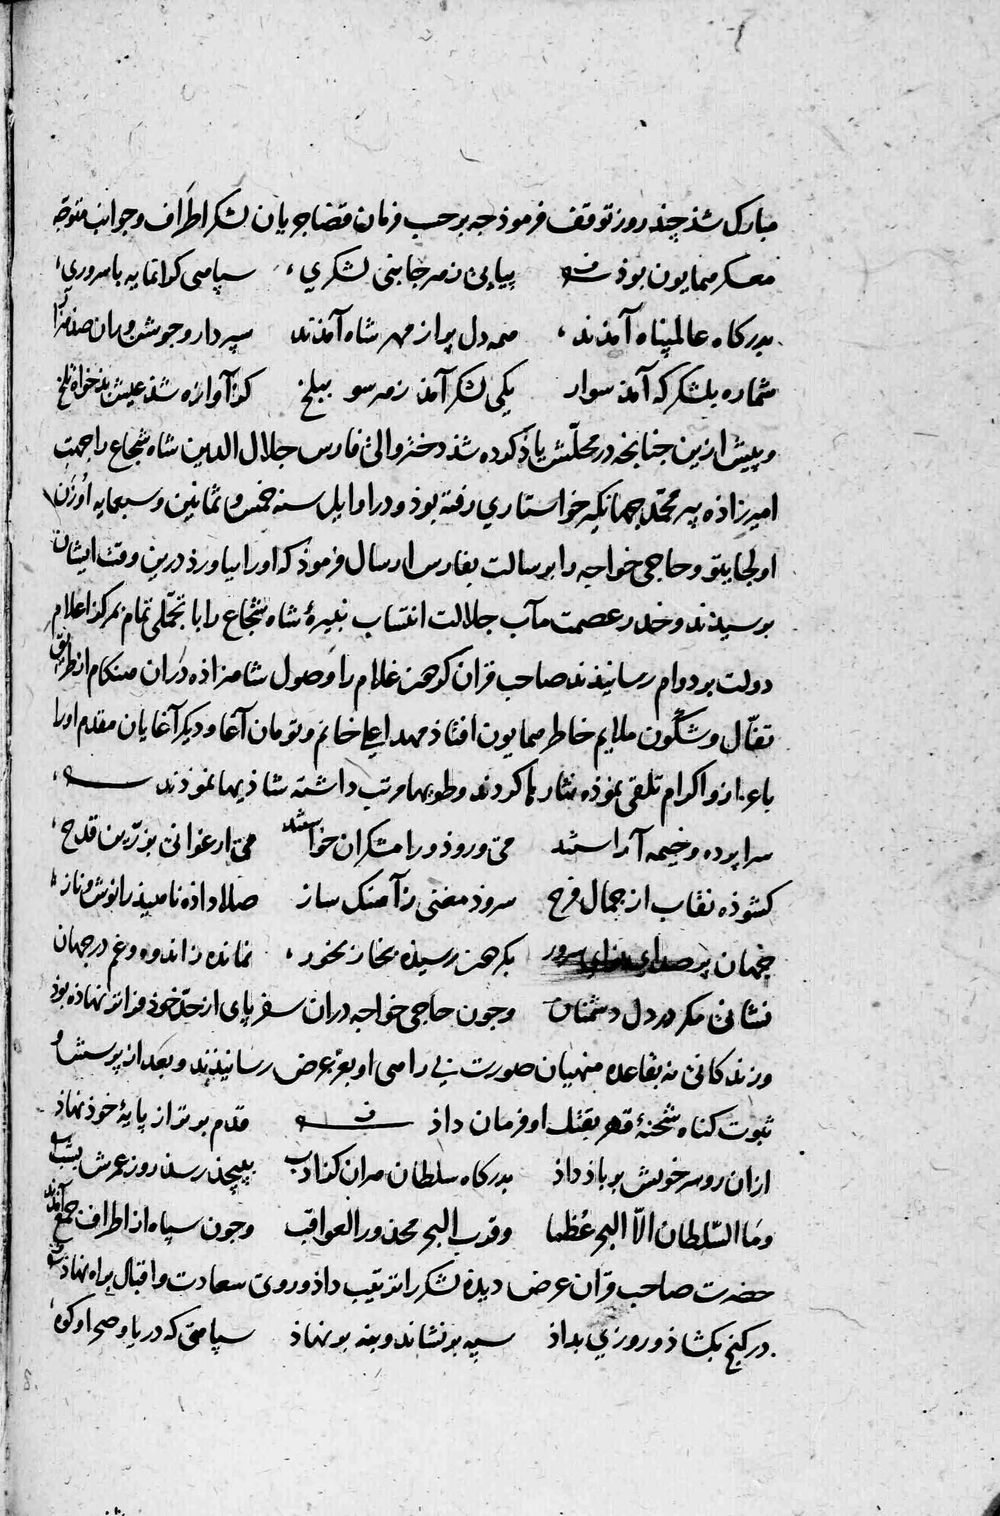 مبارک شذ چند روز توقف فرموذ جه بر حسب فرمان قضا جریان لشکر اطراف و جوانب متوجّه
معسکر همایون بوذ پیاپی ز هر جانبی لشکری سپاهی کرانمایه با سروری
بدرکاه عالمپناه آمذند همه دل پر از مهر شاه آمذند سپردار و جوشن وران صذ هزار
شماره بلشکر که آمذ سوار یکی لشکر آمذ ز هر سو ببلخ کز آوازه شذ عیش بذخواه تلخ
و پیش ازین جنانجه در محلّش یاذ کرده شذ دختر والی فارس جلال الدین شاه شجاع را جهت
امیرزاذه پیر محمّد جهانکیر خواستاری رفته بوذ و در اوایل سنه خمس و ثمانین و سبعمایه اوزن
اولجایتو و حاجی خواجه را برسالت بفارس ارسال فرموذ که او را بیاورذ درین وقت ایشان
برسیذند و خدر عصمت مآب جلالت انتساب نبیرهٔ شاه شجاع را با تجمّلی تمام بمرکز اعلام
دولت بر دوام رسانیذند صاحب قران کو هست غلام را وصول شاهزاذه دران هنکام از طریق
تفأّل و شکون ملایم خاطر همایون افتاذ مهد اعلی خانم و تومان آغا و دیکر آغایان مقدم او را
باعزاز و اکرام تلقی نموذه نثارها کردند و طویها مرتب داشته شاذیها نموذند
سراپرده و خیمه آراستند می و روذ و رامشکران خواستند می ارغوانی بزرّین قدح
کشوذه نقاب از جمال فرح سروذ مغنی ز آهنک ساز صلا داذه ناهیذ را نوش و ناز
جهان پر صدای سرور نمانده ز اندوه و غم در جهان
نشانی مکر در دل دشمنان وجون حاجی خواجه دران سفر پای از حدّ خوذ فراتر نهاذه بوذ
و زندکانی نه بقاعده منهیان صورت بی راهی او بعزّ عرض رسانیذند و بعد از پرسش و
ثبوت کناه شحنهٔ قهر بقتل او فرمان داذ قدم برتر از پایهٔ خوذ نهاذ
ازان رو سر خویش بر باذ داذ بدرکاه سلطان مران کز ادب بپیچذ رسذ روز عمرش بشب
وما السّلطان الّا البحر عُظما وقرب البحر محذور العواقب وجون سپاه از اطراف جمع آمذند
حضرت صاحب قران عرض دیذه لشکر را ترتیب داذ و روی سعادت و اقبال براه نهاذ
در کنج بکشاذ و روزی بداذ سپه برنشاند و بنه برنهاذ سپاهی که دریا و صحرا و کوه